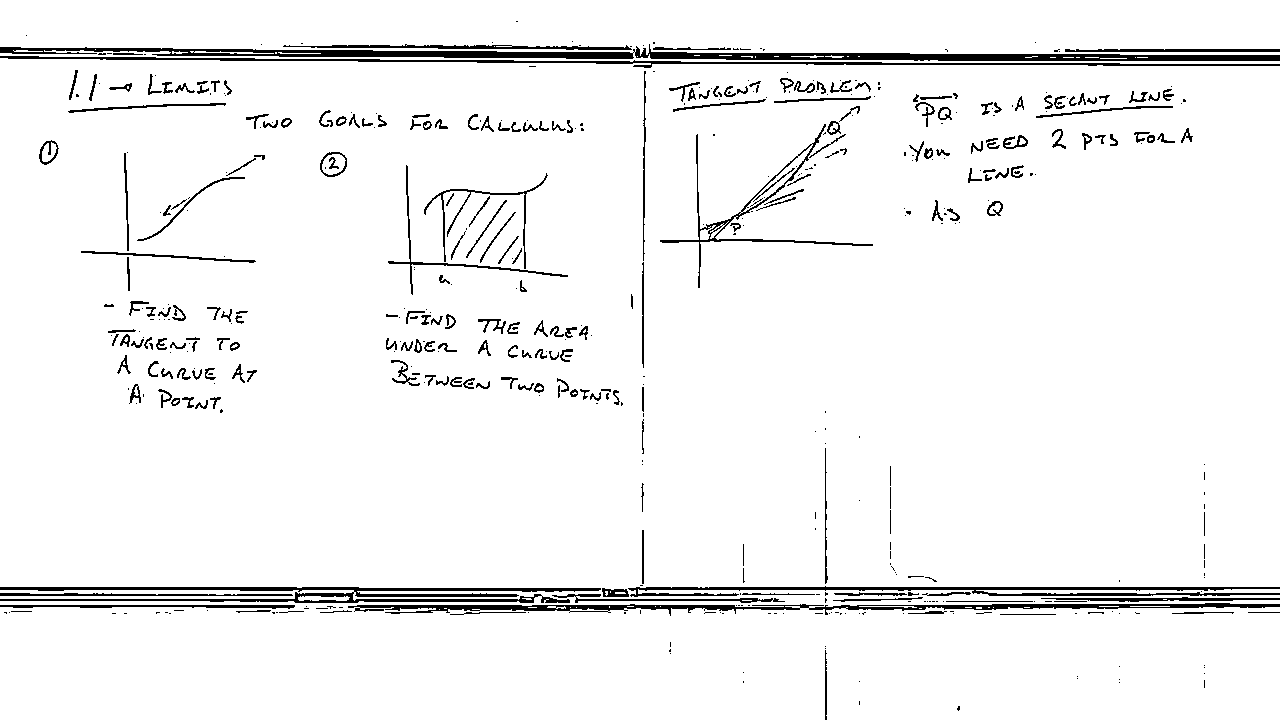 1.1 → LIMITS
TWO GOALS FOR CALCULUS:
①
②
a b
- FIND THE
TANGENT TO
A CURVE AT
A POINT.
- FIND THE AREA
UNDER A CURVE
BETWEEN TWO POINTS.
TANGENT PROBLEM:
Q
P
PQ IS A SECANT LINE.
· YOU NEED 2 PTS FOR A
LINE.
· AS Q